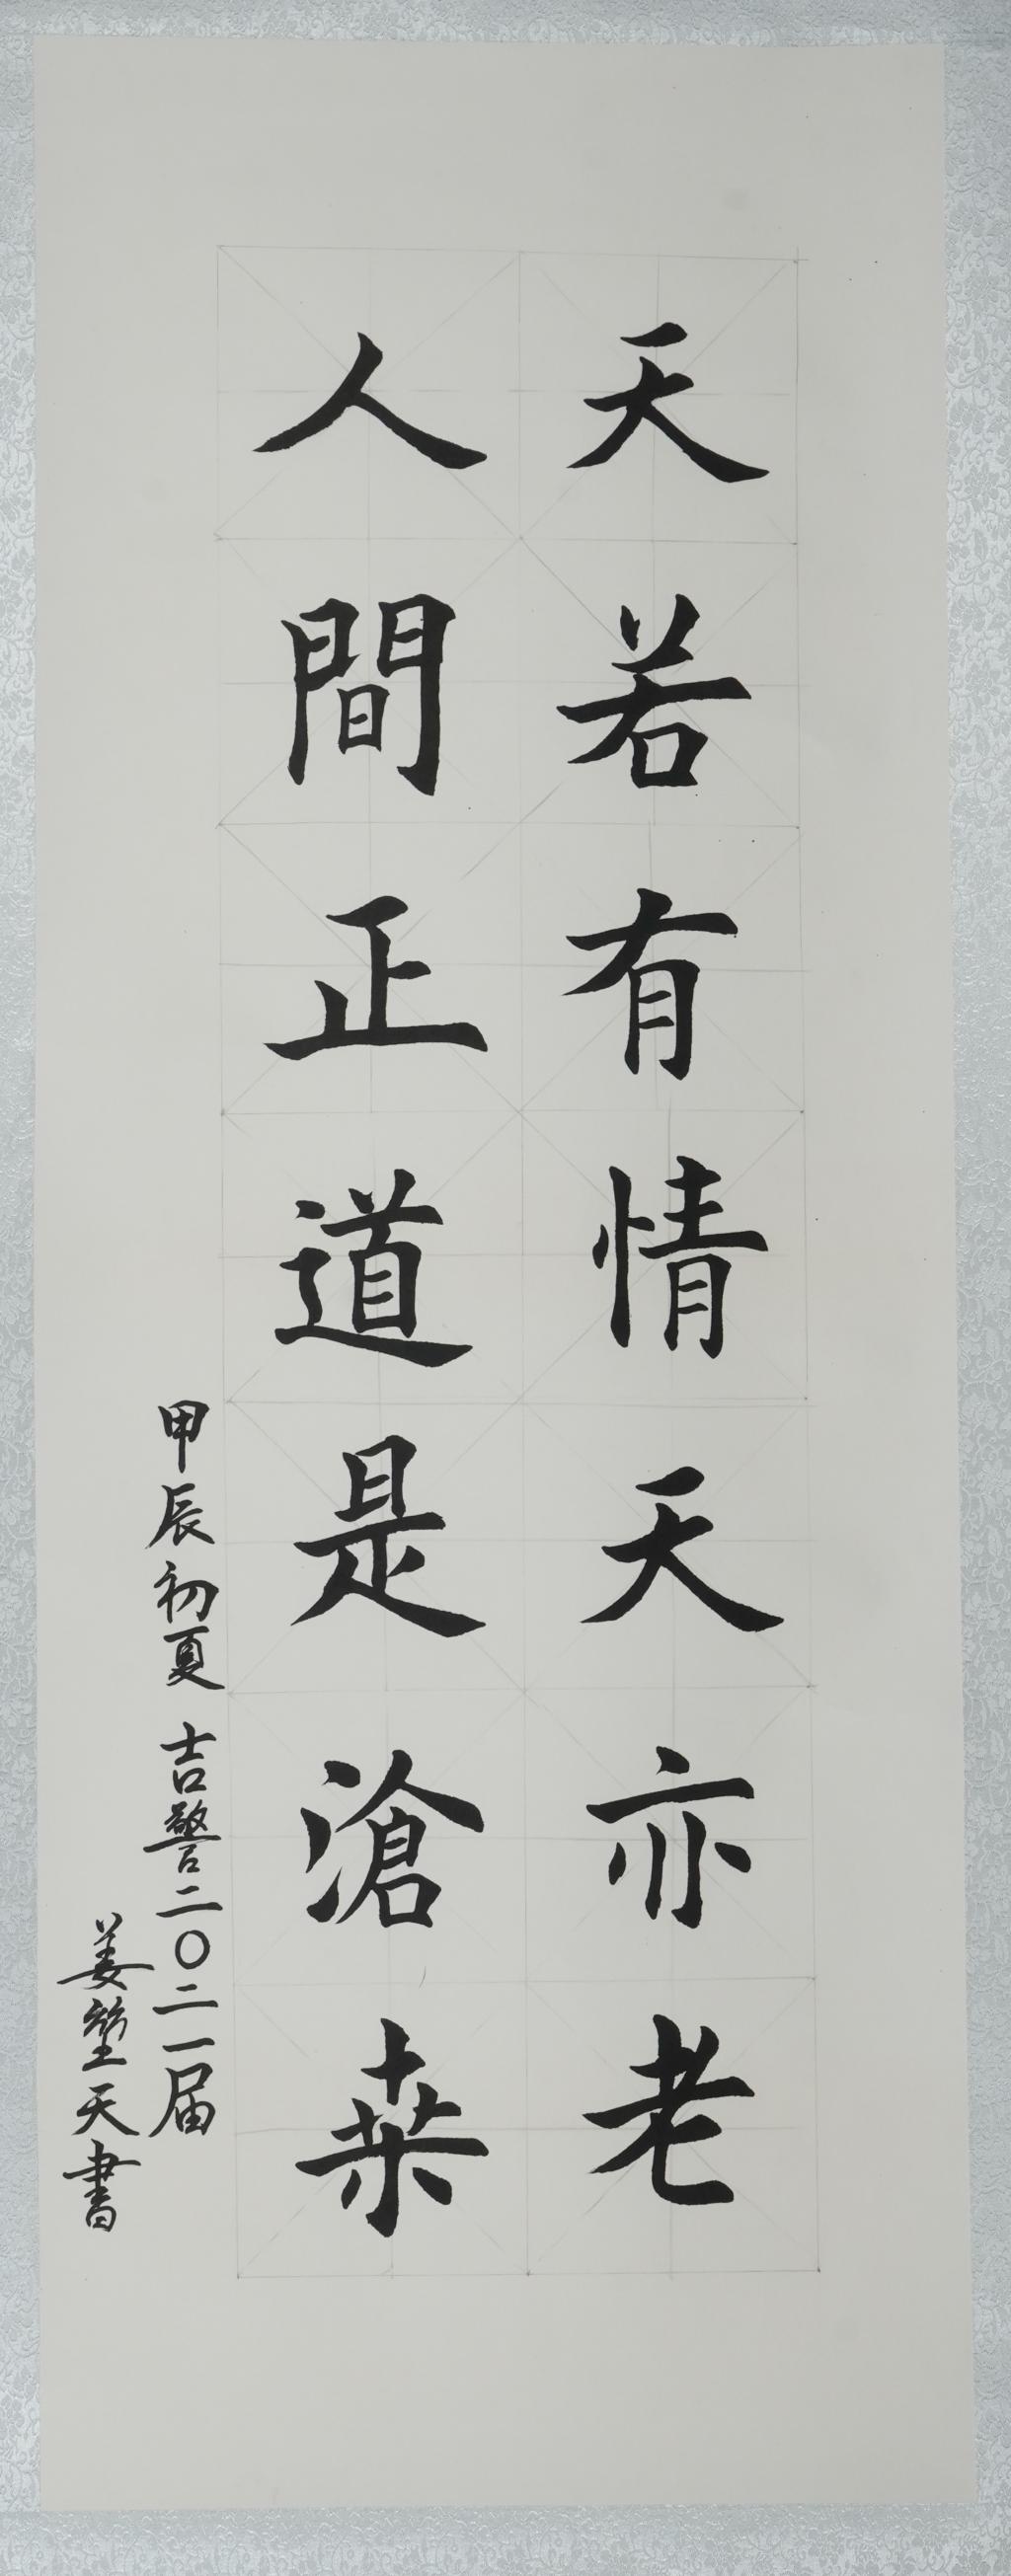 天若有情天亦老
人間正道是滄桒
甲辰初夏 吉警二〇二一届
姜堃天書